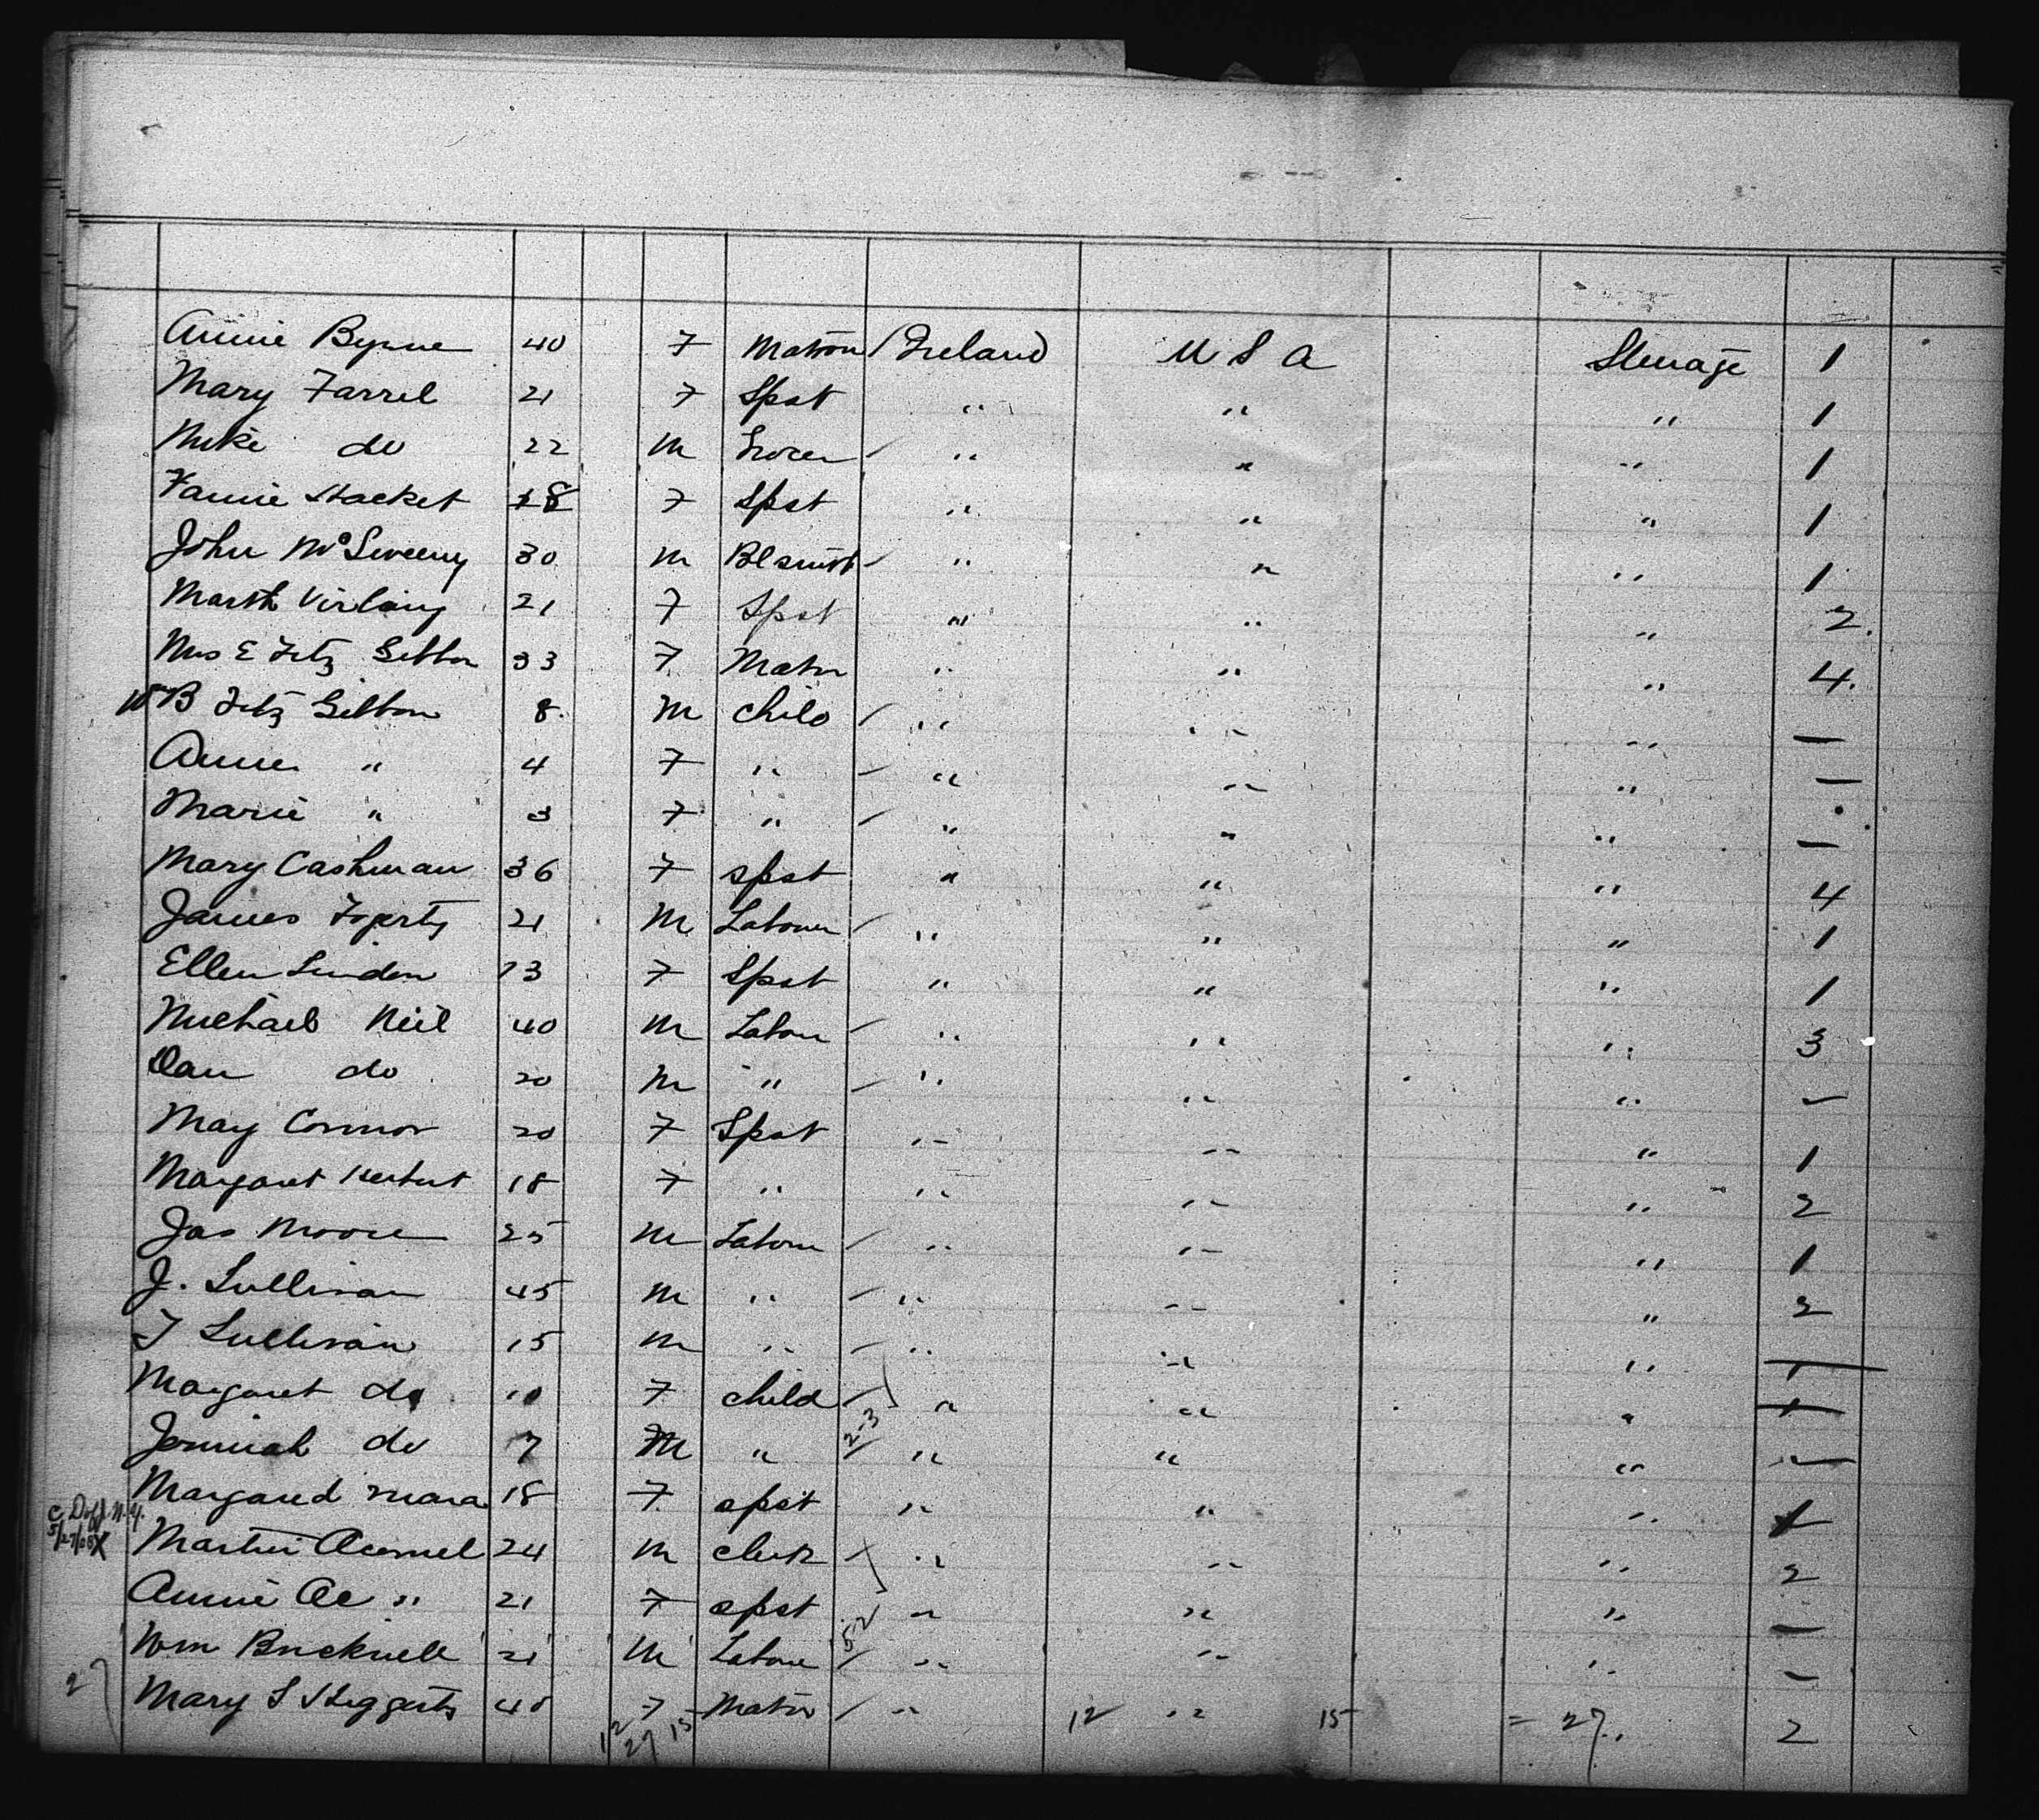 Annie Byrne 40 F Matron / Ireland U S A Steerage 1
Mary Farrel 21 F Spst " " " 1
Mike do 22 M Grocer / " " " 1
Fannie Hacket 18 F Spst " " " 1
John McSweeny 30 M Blsmith / " " " 1
21 F Spst " " " 2.
Mrs E Fitz Gibbon 33 F Matn " " " 4.
B Fitz Gibbon 8 M Child / " " " —
Annie " 4 F " / " " " —
Marie " 3 F " / " " " —
Mary Cashman 36 F spst " " " 4
James Fogerty 21 M Labour / " " " 1
Ellen Lindon 23 F Spst " " " 1
Michael Neil 40 M Labour / " " " 3
Dan do 20 M " / " " " —
May Connor 20 F Spst " " " 1
Margaret Herbert 18 F " " " " 2
Jas Moore 25 M Labour / " " " 1
J. Sullivan 45 M " / " " " 2
T Sullivan 15 M " / " " " —
Margaret do 10 F child / " " " —
Jermiah do 7 M " 2-3 / " " " —
Margared Mara 18 F spst " " " 1
C. Duff. N.Y.
5/27/08 X Martin 24 M clerk / " " " 2
Annie " 21 F spst " " " —
Wm Bucknell 21 M Labour 5-2 / " " " —
27 Mary S Heggerty 40 F Matn / " 12 " 15 = 27. " 2
12 27 15